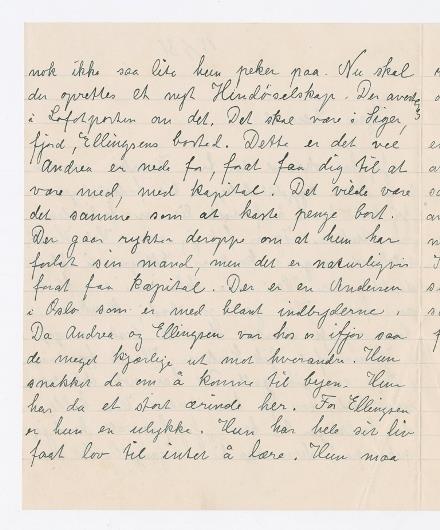 nok ikke saa lite hun peker paa. Nu skal
der oprettes et nyt Hindöselskap. Der averteres
i Lofotposten om det. Det skal være i Siger,
fjord, Ellingsens bosted. Dette er det vel
Andrea er nede for, forat faa dig til at
være med, med kapital. Det vilde være
det samme som at kaste penge bort.
Der gaar rykter deroppe om at hun har
forlat sin mand, men det er naturligvis
forat faa kapital. Der er en Andersen
i Oslo som er med blant indbyderne.
Da Andrea og Ellingsen var hos os ifjor saa
de meget kjærlige ut mot hverandre. Hun
snakket da om å komme til byen. Hun
har da et stort ærinde her. For Ellingsen
er hun en ulykke. Hun har hele sit liv
faat lov til intet å lære. Hun maa